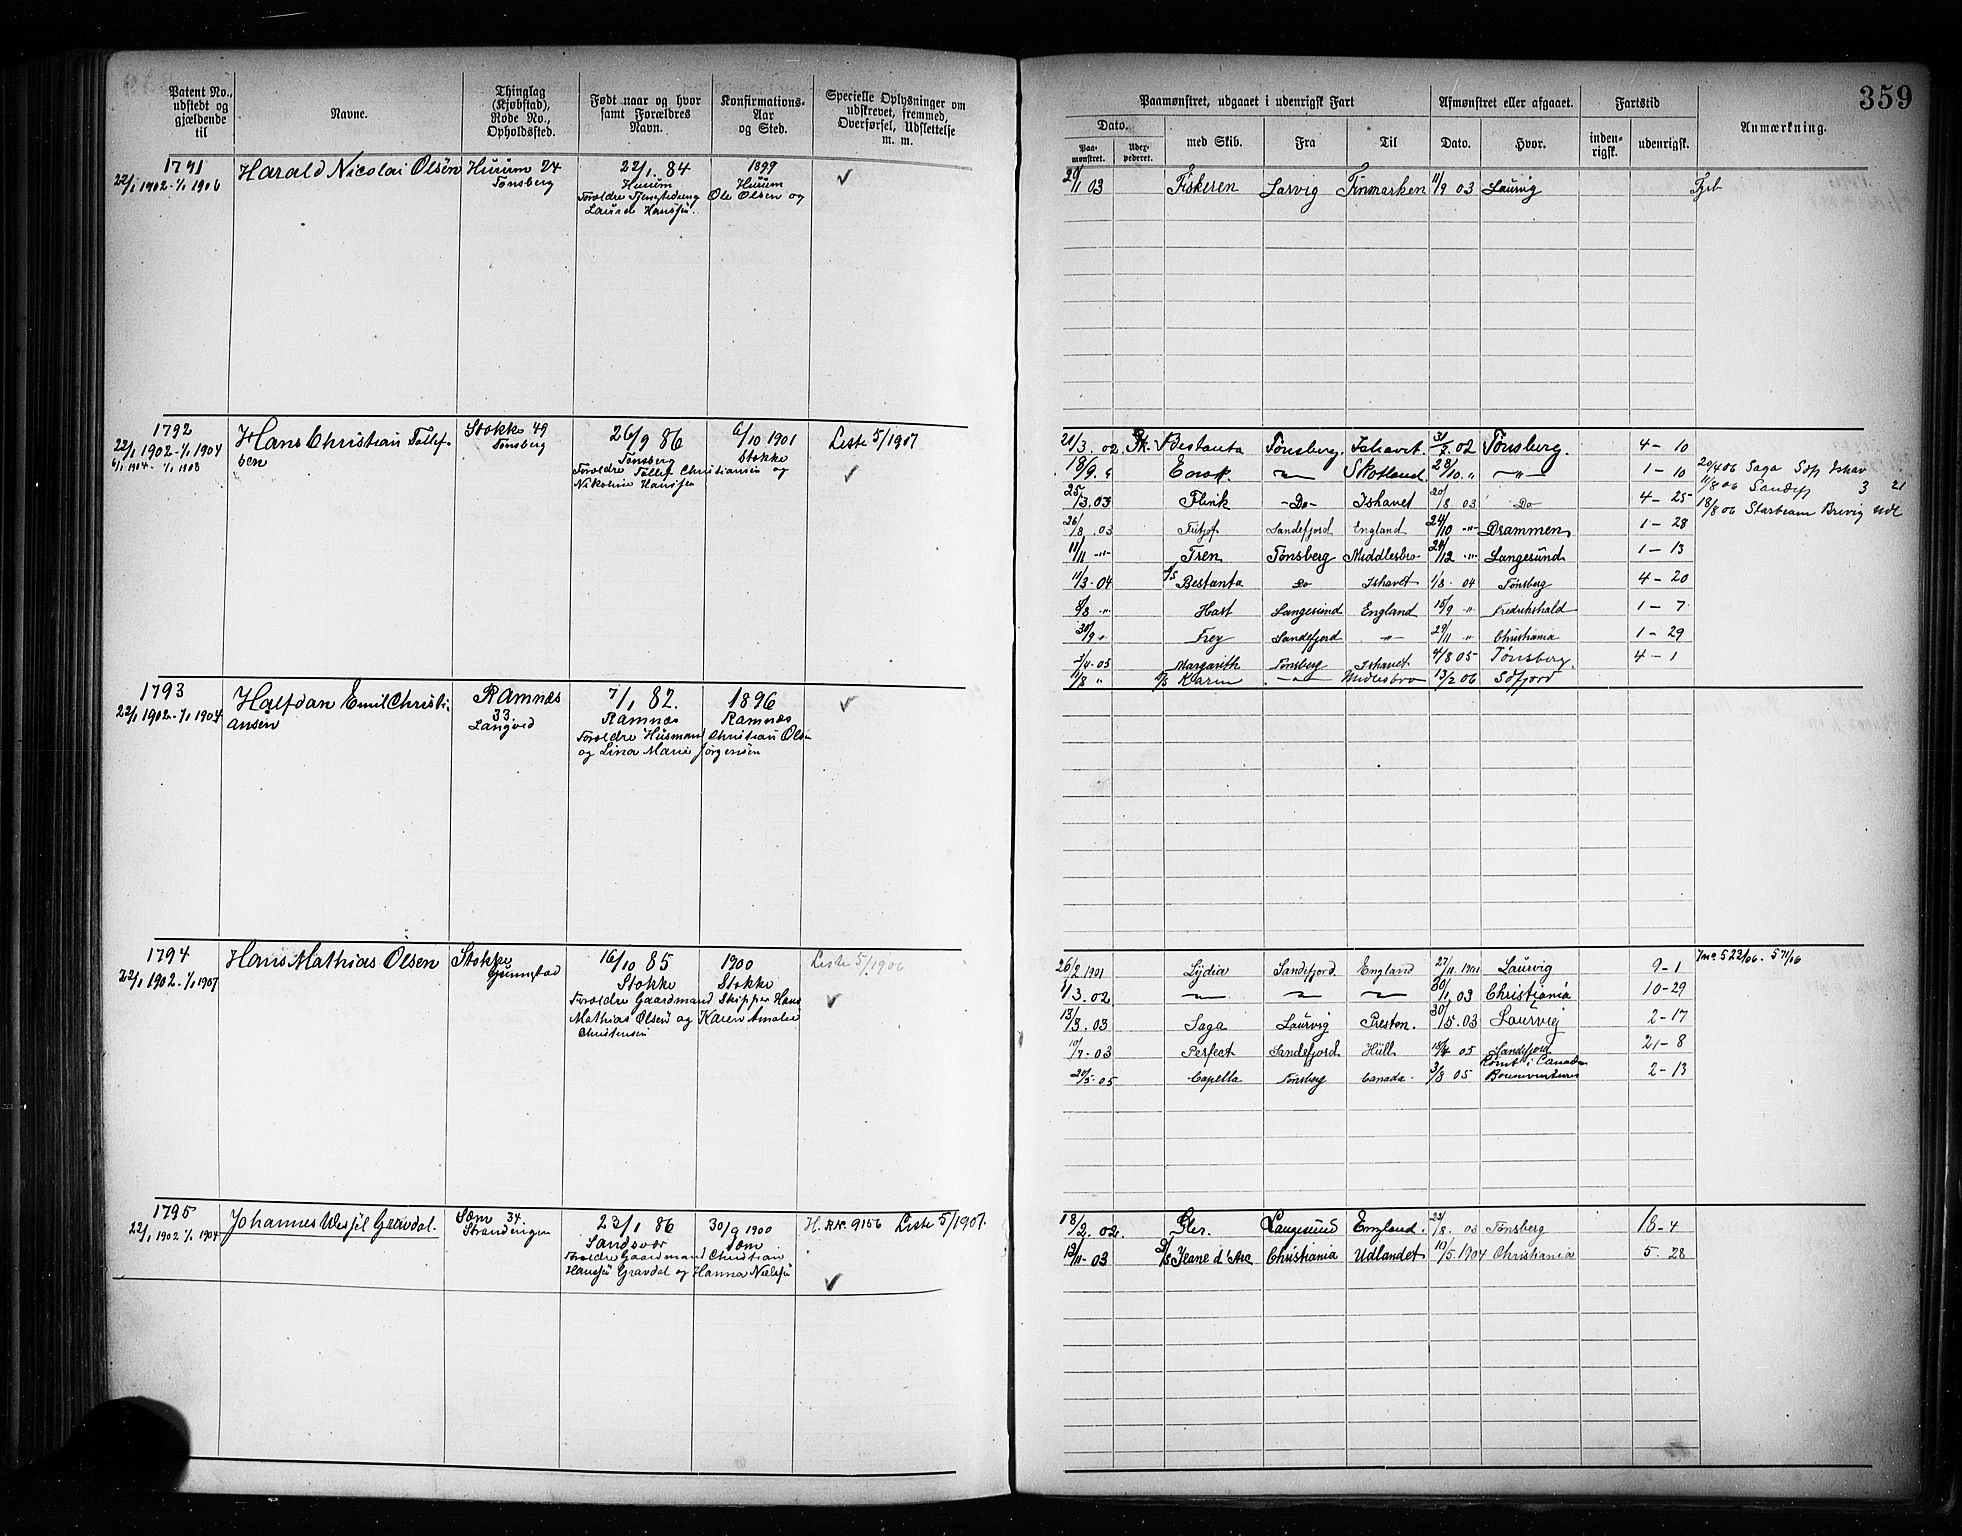 359
Patent No., udstedt og gjældende til
Navne.
Thinglag (Kjøbstad), Rode No., Opholdssted.
Født naar og hvor samt Forældres Navn.
Konfirmations-Aar og Sted.
Specielle Oplysninger om udskrevet, fremmed, Overførsel, Udslettelse m. m.
Paamønstret, udgaaet i udenrigsk Fart
Afmønstret eller afgaaet.
Fartstid
Anmærkning.
Dato.
Paa-mønstret.
Uder-pederet.
med Skib.
Fra
Til
Dato.
Hvor.
inden-rigsk.
udenrigsk.
1791
22/1 1902 - 1/1 1906
Harald Nicolai Olsen
Hurum 24
Tønsberg
22/1. 84
Hurum
1899
Hurum
Forældre
Ole Olsen og
Laura Hansen.
20/1 03 Fiskeren Larvig Finmarken 11/9 03 Laurvig
1792
22/1 1902 - 1/1 1904
6/1 1904 - 1/1 1908
Hans Christian Tollef-
sen
Stokke 49
Tønsberg
26/9 86
Tønsberg
6/10 1901
Stokke
Forældre Tollef Christiansen og
Nikoline Hansen
Liste 5/1907
21/3. 02 Sk. Bestanta Tønsberg Ishavet. 31/7 02 Tønsberg. 4 - 10
18/9. " Enok. — " — Skotland 28/10. " — " — 1 - 10
25/3.03 Flink — Do — Ishavet 20/8 03 Do 4 - 25
26/8 .03 Fritjof Sandefjord England 24/10 - " - Drammen 1 - 28
11/11 - " - Fren Tønsberg Middlesbro 24/12 - " - Langesund 1 - 13
11/3 - 04 S/S Bestanta Do Ishavet 1/8 - 04 Tønsberg 4 - 20
9/8 - " Hast Langesund England 15/9 " Fredrikshald 1 - 7
30/9 " Frey Sandefjord - " - 29/11 " Christiania 1 - 29
3/4 - 05 Margarith Tønsberg Ishavet 4/8 05 Tønsberg 4 - 1
11/8 " S/S Karin - " - Midlesbro 13/2 06 Sdfjord
20/4 06 Saga Sdfj Ishav
11/8 06 Sandefj 3 21
18/8 06 Starbeam Brevig Udl
1793
22/1 1902 - 1/1 1904
Halfdan Emil Christi-
ansen
Ramnæs
33
Langved
7/1 82.
Ramnæs
1896
Ramnæs
Forældre Husmand Christian Olsen
og Lina Marie Jørgensen
1794
22/1 1902 - 1/1 1907
Hans Mathias Olsen
Stokke
Gunnestad
16/10 85
Stokke
1900
Stokke
Forældre Gaardmand Skipper Hans
Mathias Olsen og Karen Amalie
Christensen
Liste 5/1906
Jnº 523/06 - 571/16
26/2 1901 Lydia Sandefjord. England 27/11 1901 Laurvig 9 - 1
1/3. 02 — " — — " — — " — 30/11 03 Christiania 10 - 29
13/3. 03 Saga Laurvig Preston. 30/5. 03 Laurvig 2 - 17
10/7 - 03 Perfect Sandefjord Hull 18/4 05 Sandefjord 21 - 8
20/5 - 05 Capella Tønsberg Canada. 3/8 05 Rømt i Canada
Boneventure 2 - 13
1795
22/1 1902 1/1 1904
Johannes Gravdal.
Sæm 34
Strandengen
23/1 86
Sandsvær
30/9 1900
Sæm
Forældre Gaardmand Christian
Hansen Gravdal og Hanna Nielsen
H. RK. 9156 Liste 5/1907.
18/2. 02. Gler. Langesund England. 23/8. 03 Tønsberg 18 - 4
13/11 - 03 S/S Jeane d'Arc Christiania Udlandet 10/5. 1904 Christiania 5. 28